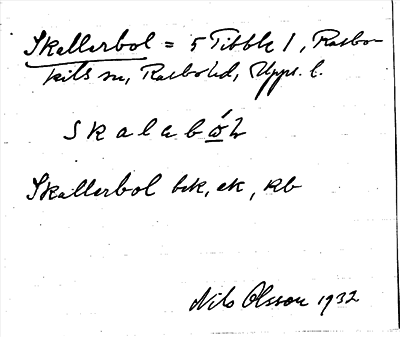 Skallerbol = 5 Tibble 1, Rasbo-
kils sn, Rasbo hd, Upps. l.
Skalabώ̲l
Skallerbol bek, ek, kb
Nils Olsson 1932